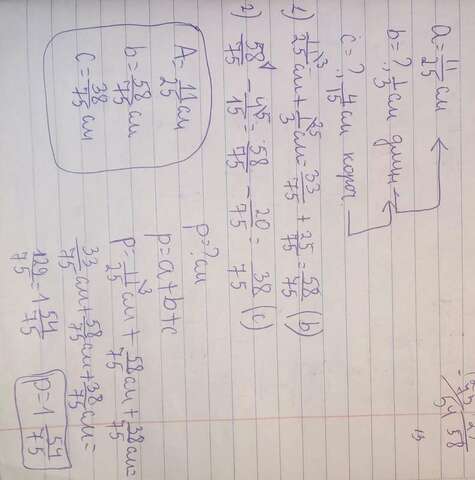 a = 11/25 см
b = ?, 1/3 см длин
c = ?, 4/15 см короч
1) 11/25 см + 1/3 см = 33/75 + 25/75 = 58/75 (b)
2) 58/75 - 4/15 = 58/75 - 20/75 = 38/75 (c)
A = 11/25 см
b = 58/75 см
c = 38/75 см
p = ? см
p = a + b + c
p = 11/25 см + 58/75 см + 38/75 см =
33/75 см + 58/75 см + 38/75 см =
129/75 = 1 54/75
p = 1 54/75